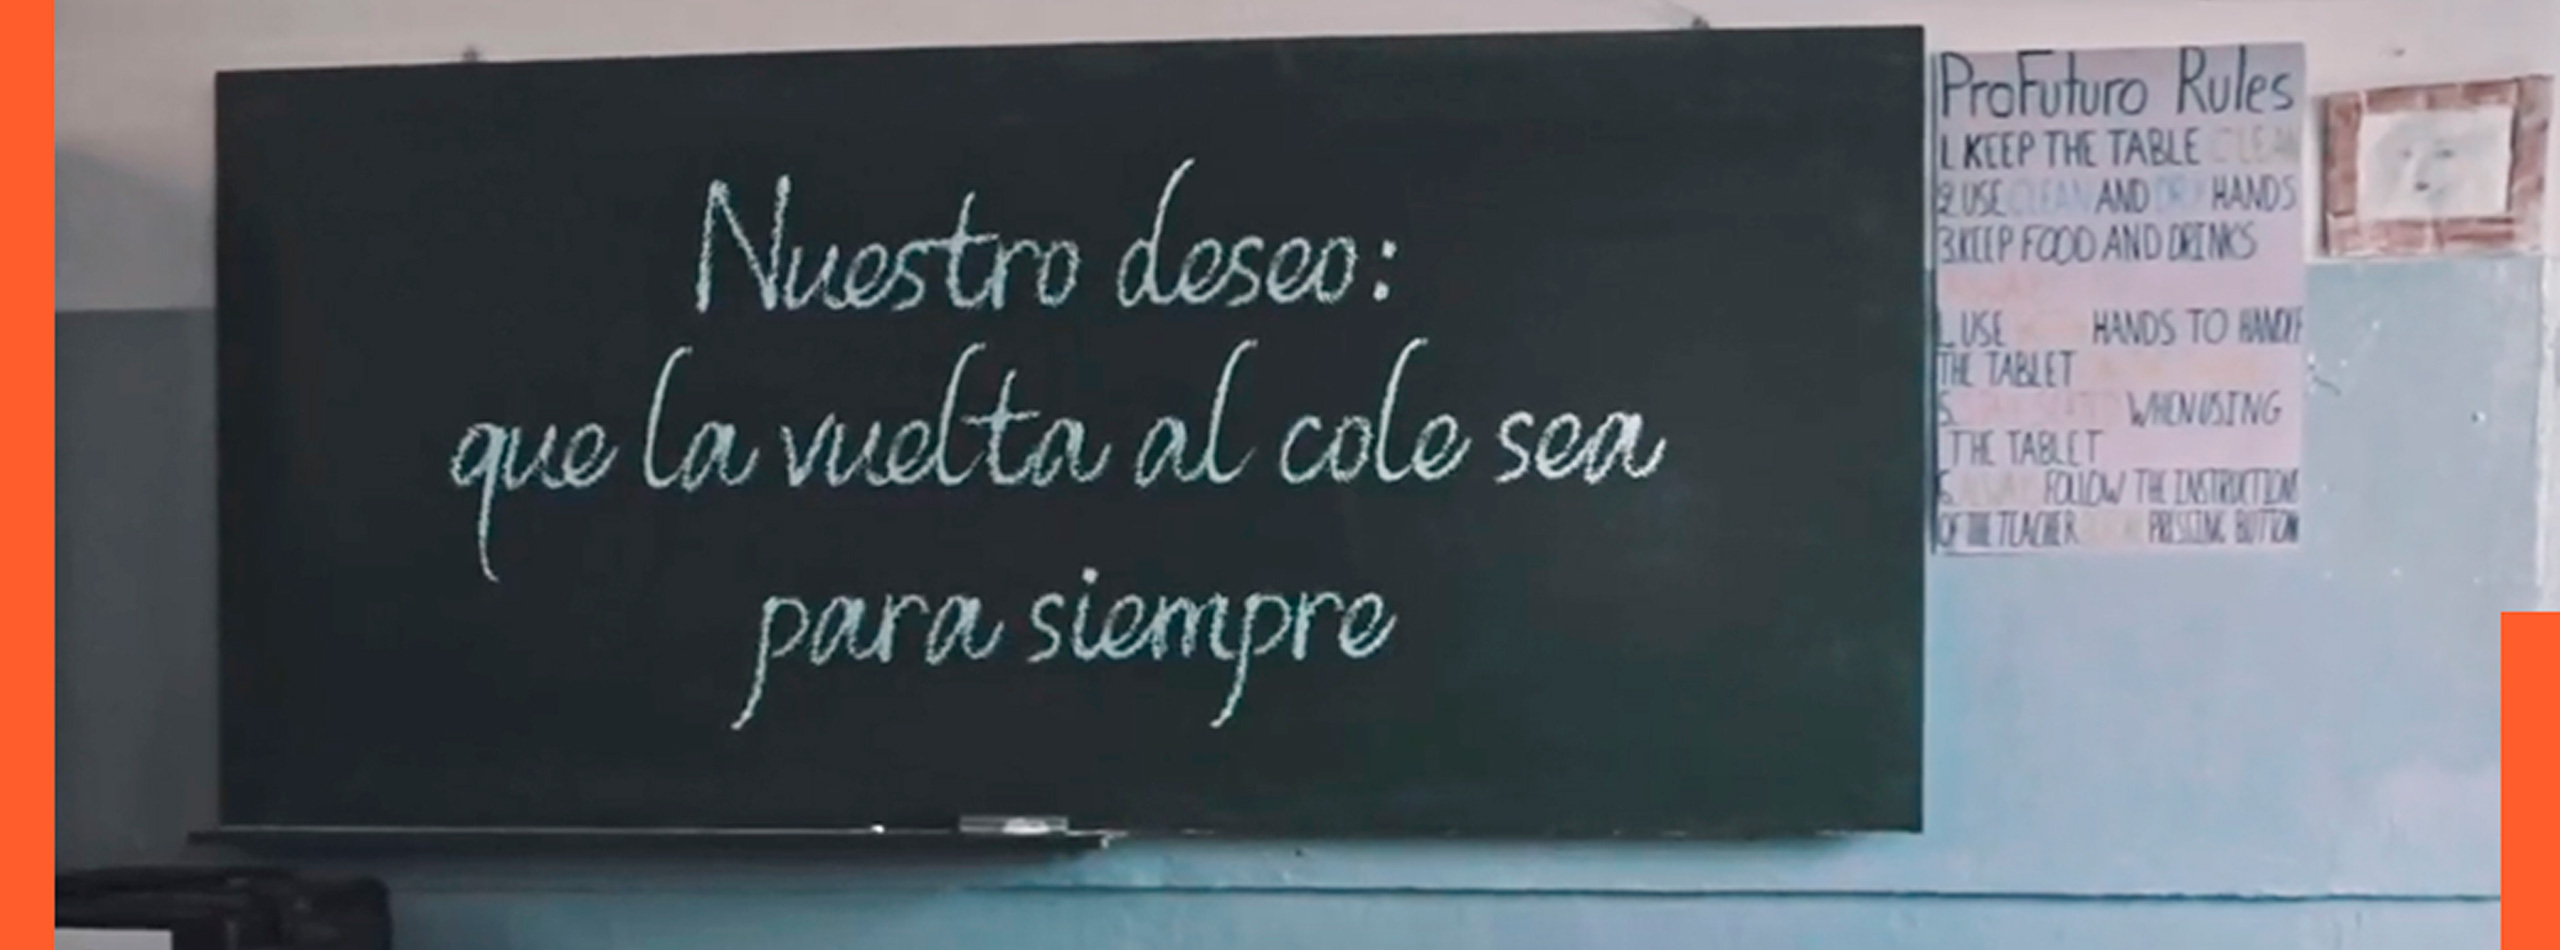 Nuestro deseo:
que la vuelta al cole sea
para siempre
ProFuturo Rules
1. KEEP THE TABLE CLEAN
2. USE CLEAN AND DRY HANDS
3. KEEP FOOD AND DRINKS
USE HANDS TO HANDLE
THE TABLET
5. WHEN USING
THE TABLET
6. FOLLOW THE INSTRUCTION
OF THE TEACHER PRESSING BUTTON